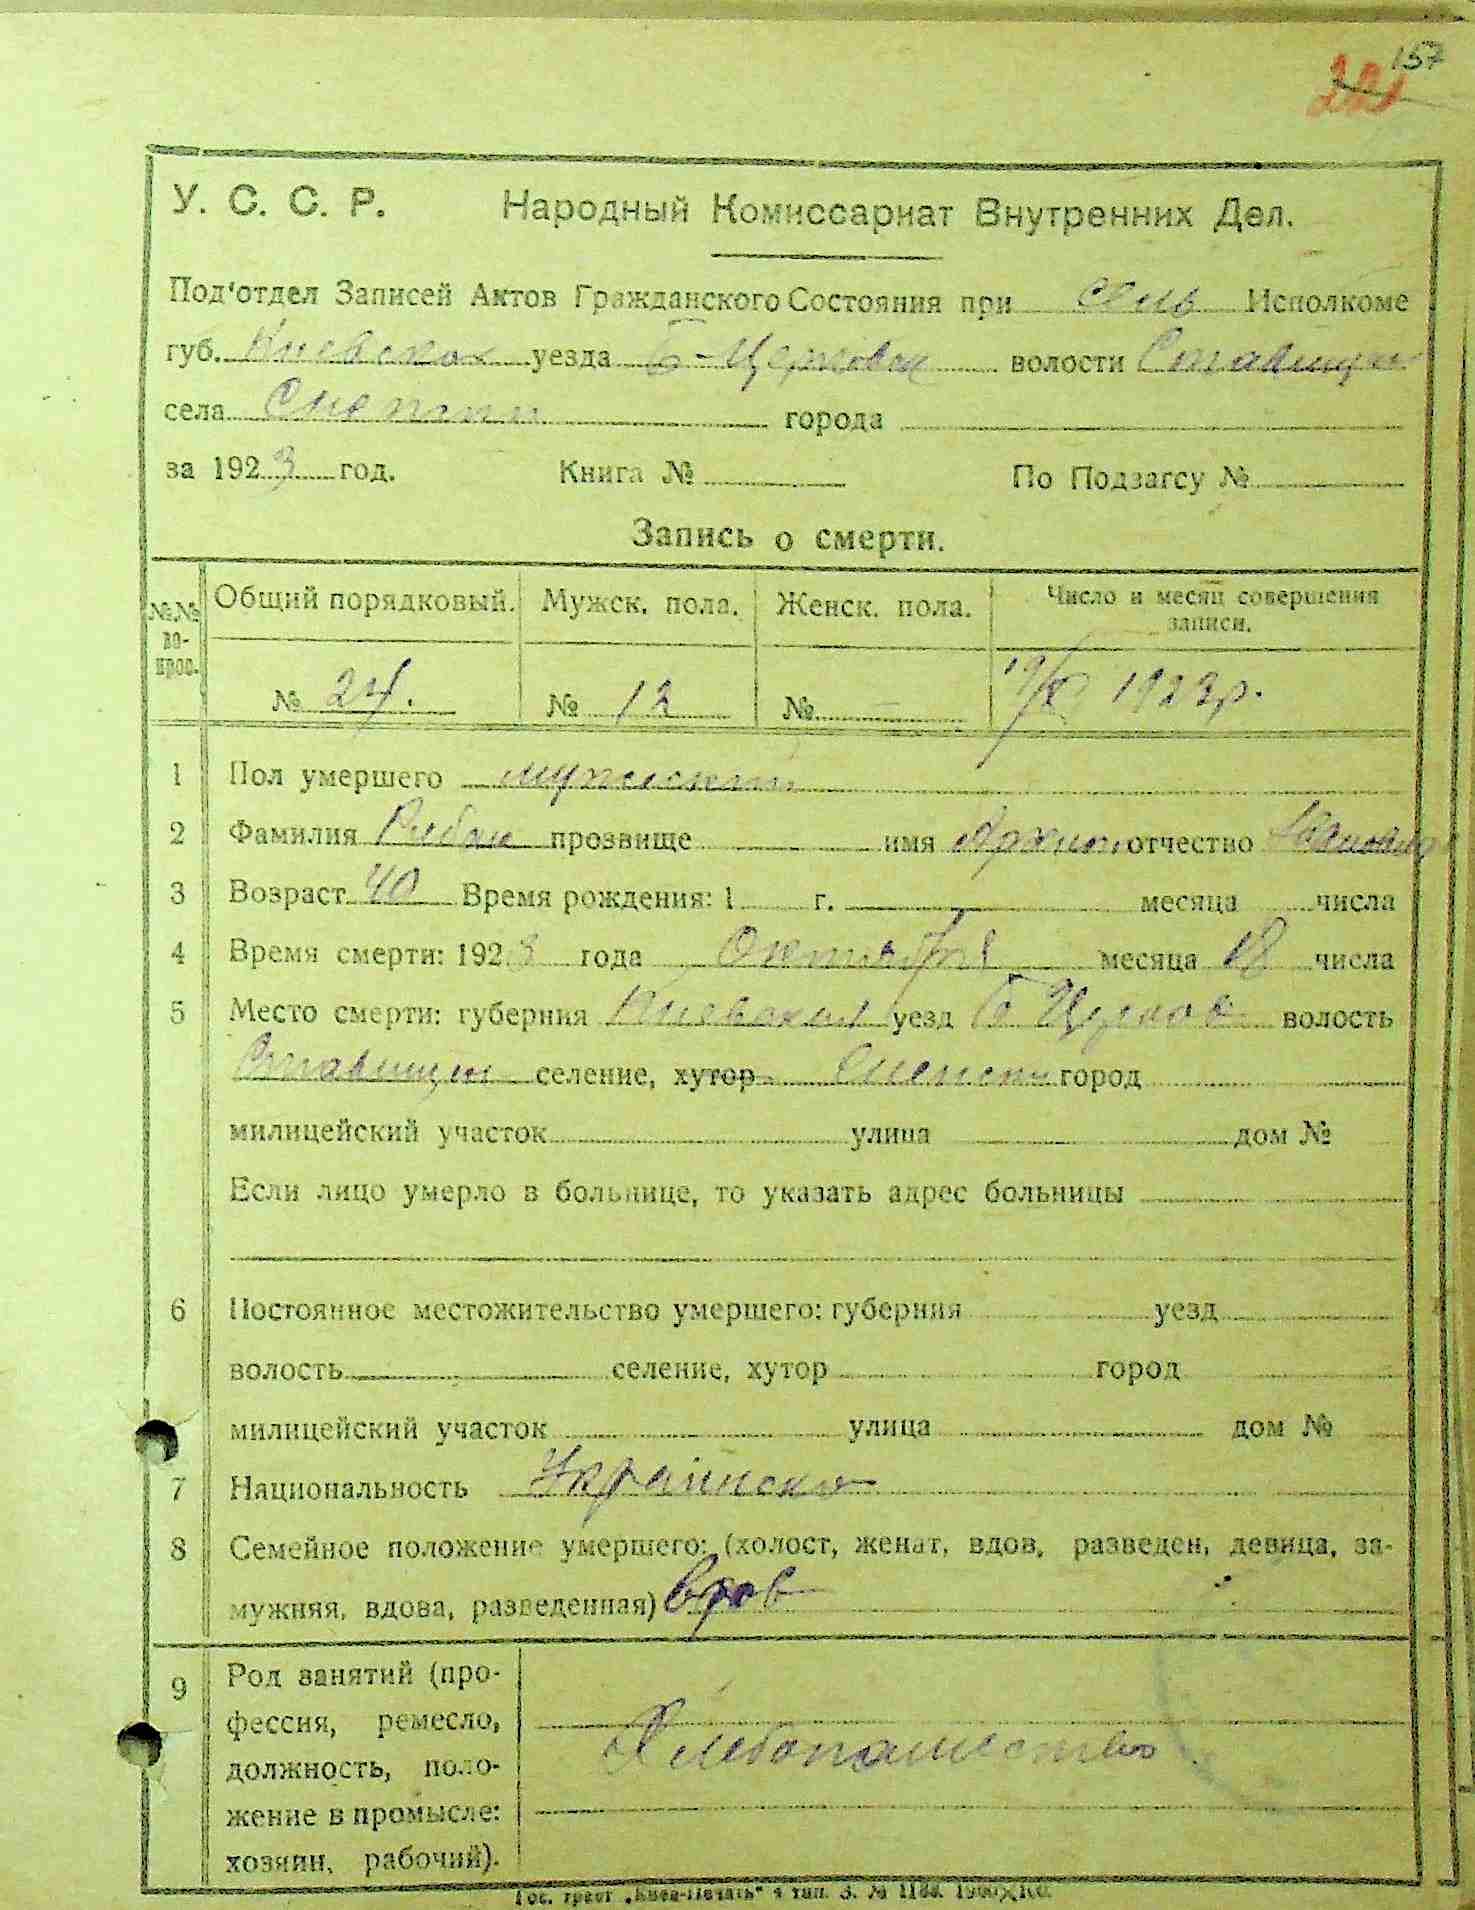 157
221
У. С. С. Р. Народный Комиссариат Внутренних Дел.
Под'отдел Записей Актов Гражданского Состояния при Исполкоме
губ. Киевская уезда Б-Церковск волости Ставищен
села города
за 1923 год. Книга № По Подзагсу №
Запись о смерти.
№№ во-прос. Общий порядковый. Мужск. пола. Женск. пола. Число и месяц совершения
записи.
№ 24. № 12 № 19/X 1923 р.
1 Пол умершего мужеский
2 Фамилия Рибак прозвище имя Архип отчество
3 Возраст 40 Время рождения: 1 г. месяца числа
4 Время смерти: 1923 года Октября месяца 18 числа
5 Место смерти: губерния Киевская уезд Б Церков волость
Ставищен селение, хутор город
милицейский участок улица дом №
Если лицо умерло в больнице, то указать адрес больницы
6 Постоянное местожительство умершего: губерния уезд
волость селение, хутор город
милицейский участок улица дом №
7 Национальность
8 Семейное положение умершего: (холост, женат, вдов, разведен, девица, за-
мужняя, вдова, разведенная) вдов
9 Род занятий (про-
фессия, ремесло,
Хлебопашество
должность, поло-
жение в промысле:
хозяин, рабочий).
Гос. трест „Киев-Печать" 4 тип. З. №